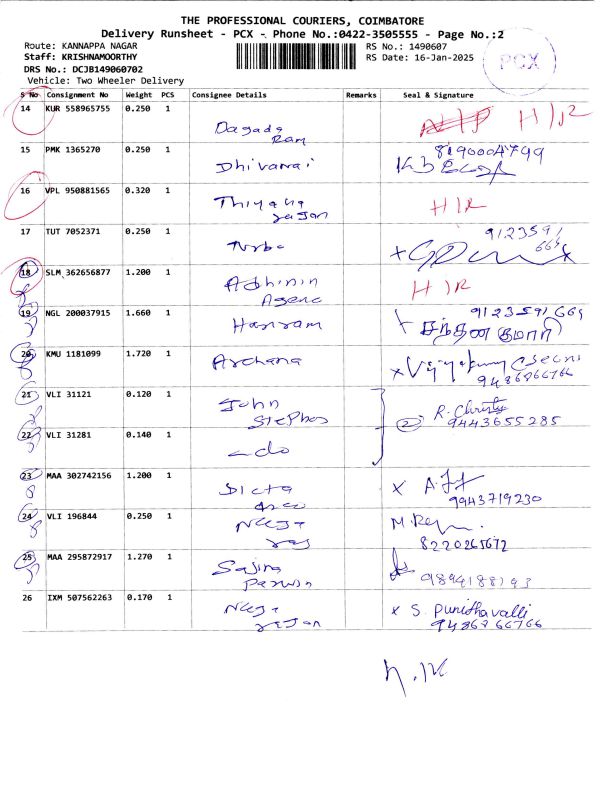 THE PROFESSIONAL COURIERS, COIMBATORE
Delivery Runsheet - PCX - Phone No.:0422-3505555 - Page No.:2
Route: KANNAPPA NAGAR RS No.: 1490607
Staff: KRISHNAMOORTHY RS Date: 16-Jan-2025
DRS No.: DCJB149060702
Vehicle: Two Wheeler Delivery
PCX
S No Consignment No Weight PCS Consignee Details Remarks Seal & Signature
14 KUR 558965755 0.250 1 Dagadu Ram H I R
15 PMK 1365270 0.250 1 Dhivanai 8190004799
16 VPL 950881565 0.320 1 Thiyaga rajan H I R
17 TUT 7052371 0.250 1 9123591
669
18 SLM 362656877 1.200 1 H I R
19 NGL 200037915 1.660 1 Hariram 9123591669
சந்தன குமாரி
20 KMU 1181099 1.720 1 Archana
9486866766
21 VLI 31121 0.120 1 John Stephos R. Christy
2 9443655285
22 VLI 31281 0.140 1 do
23 MAA 302742156 1.200 1 9943719230
24 VLI 196844 0.250 1 8220265672
25 MAA 295872917 1.270 1 Sajira Parwin 9894188193
26 IXM 507562263 0.170 1 x S. Punithavalli
9486866766